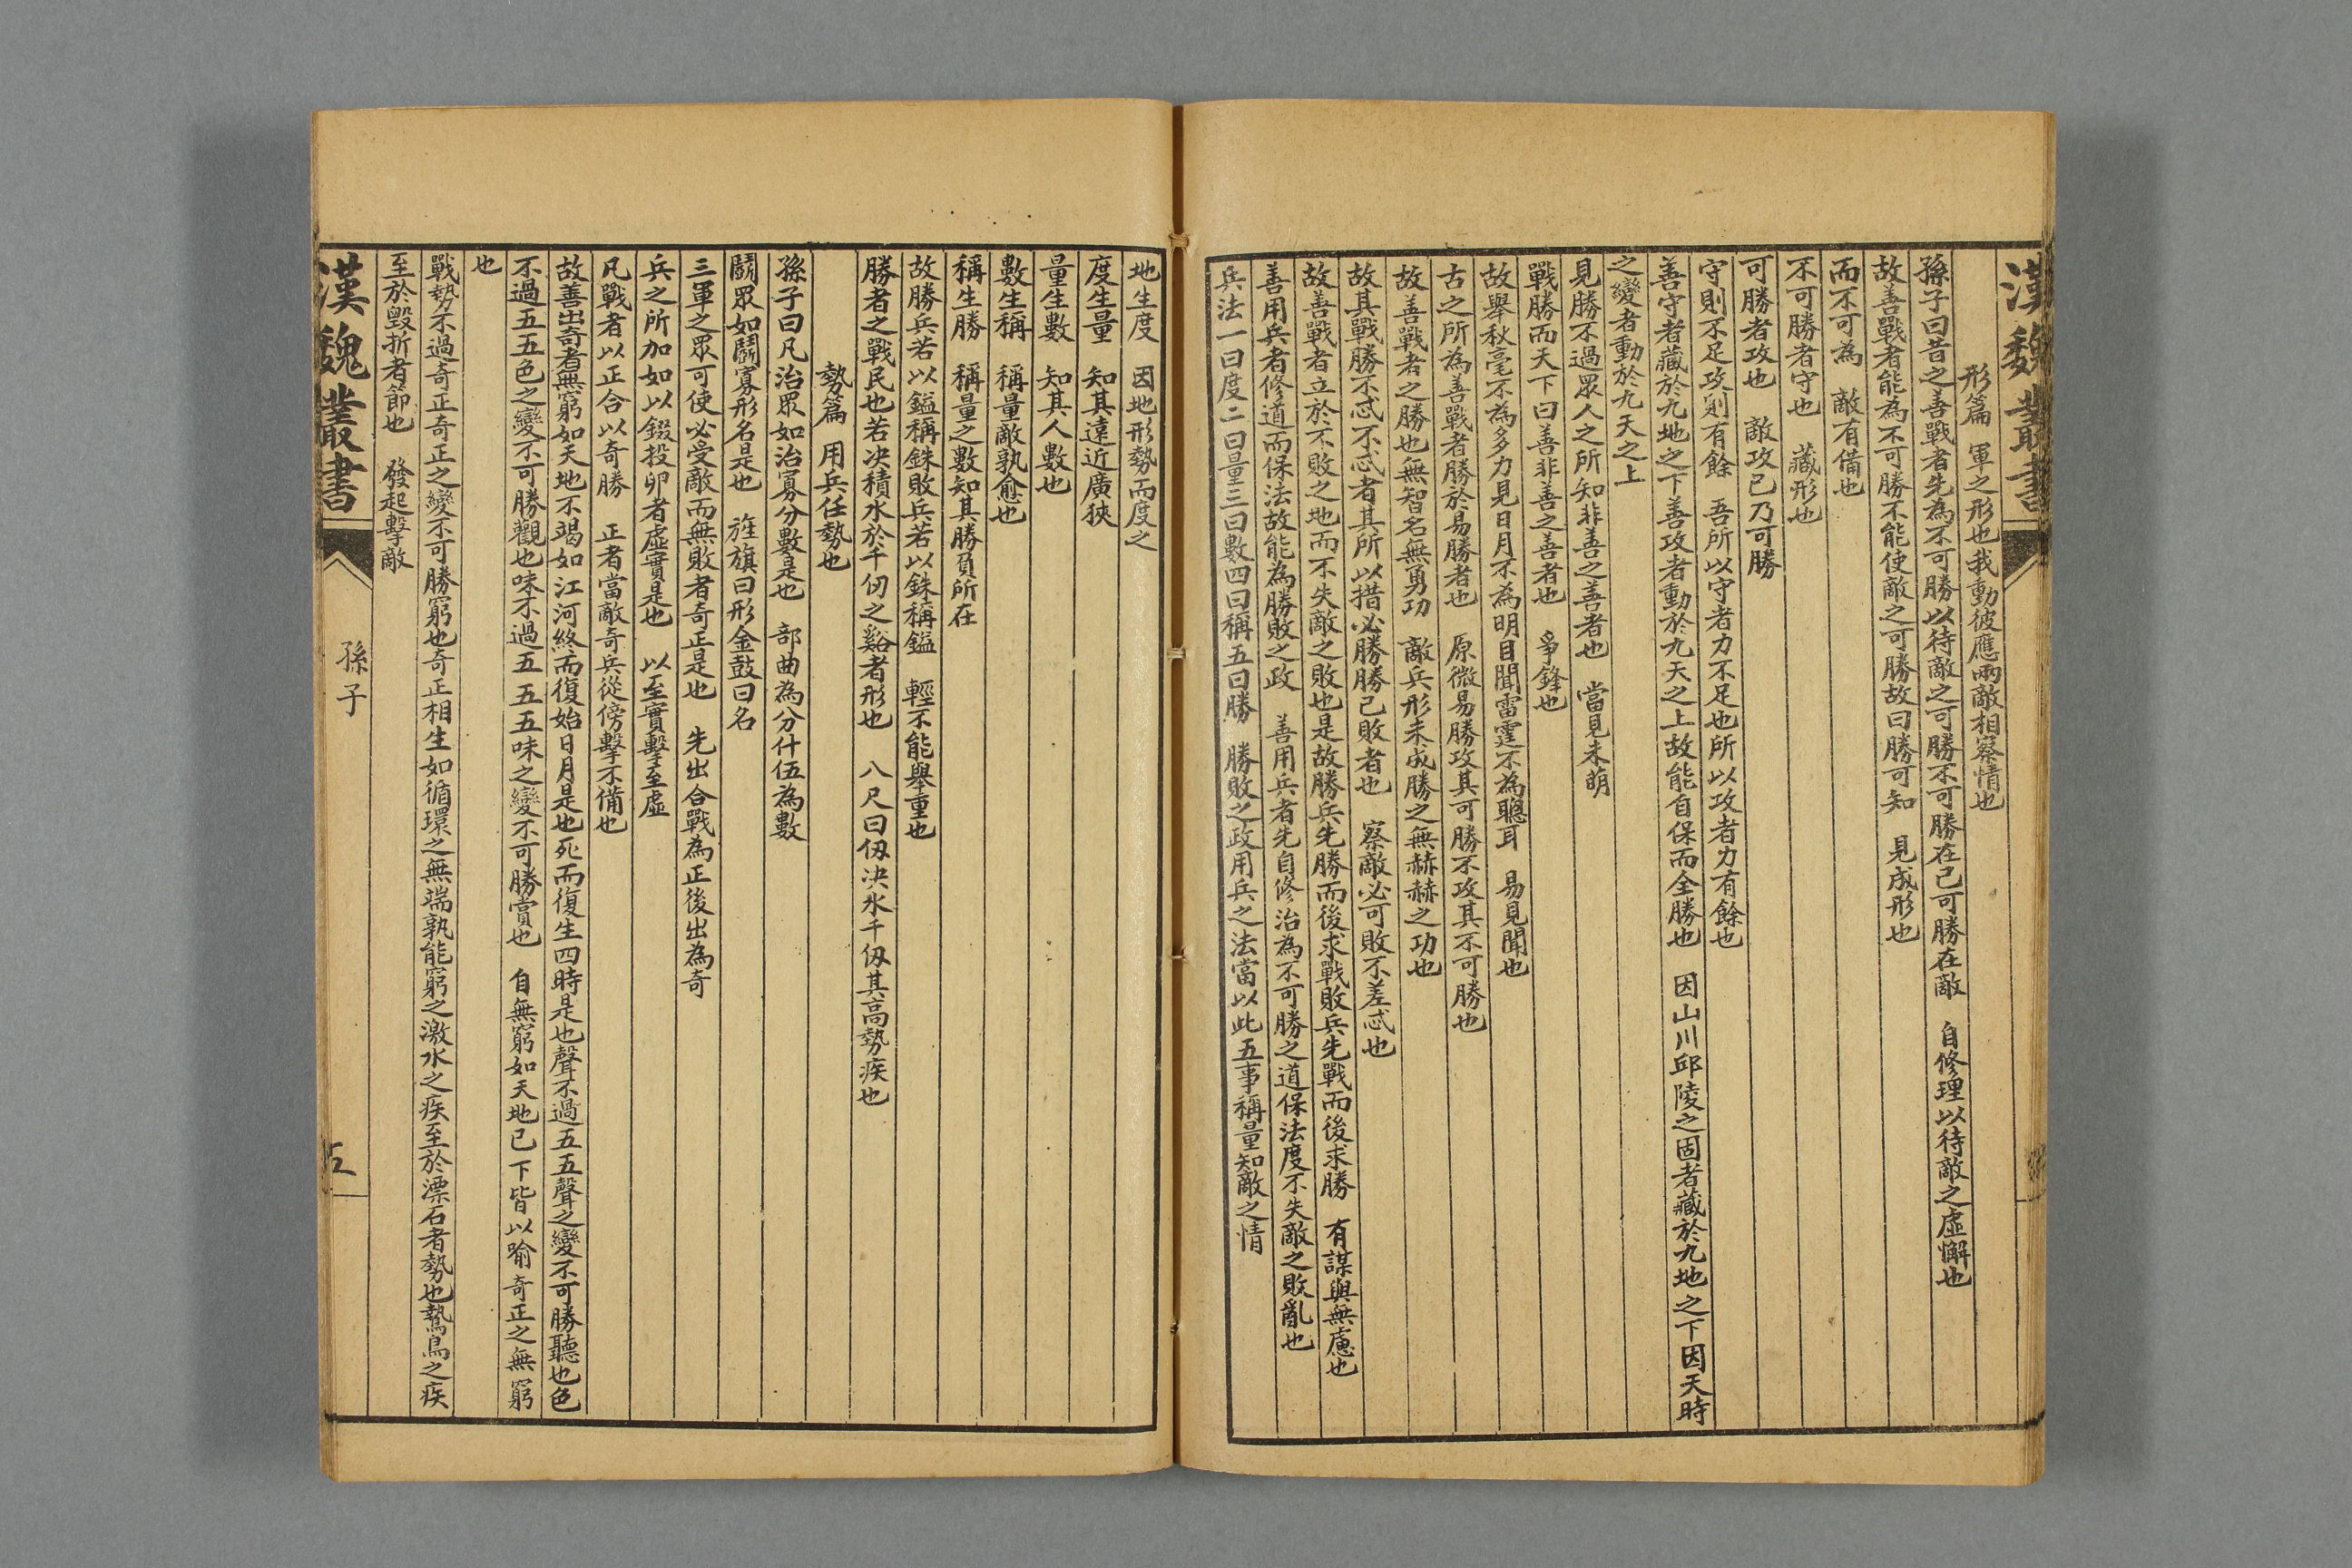 漢魏叢書
形篇　軍之形也我動彼應兩敵相察情也
孫子曰昔之善戰者先為不可勝以待敵之可勝不可勝在己可勝在敵　自修理以待敵之虛懈也
故善戰者能為不可勝不能使敵之可勝故曰勝可知　見成形也
而不可為　敵有備也
不可勝者守也　藏形也
可勝者攻也　敵攻已乃可勝
守則不足攻則有餘　吾所以守者力不足也所以攻者力有餘也
善守者藏於九地之下善攻者動於九天之上故能自保而全勝也　因山川邱陵之固者藏於九地之下因天時
之變者動於九天之上
見勝不過眾人之所知非善之善者也　當見未萌
戰勝而天下曰善非善之善者也　爭鋒也
故舉秋毫不為多力見日月不為明目聞雷霆不為聰耳　易見聞也
古之所為善戰者勝於易勝者也　原微易勝攻其可勝不攻其不可勝也
故善戰者之勝也無智名無勇功　敵兵形未成勝之無赫赫之功也
故其戰勝不忒不忒者其所以措必勝勝已敗者也　察敵必可敗不差忒也
故善戰者立於不敗之地而不失敵之敗也是故勝兵先勝而後求戰敗兵先戰而後求勝　有謀與無慮也
善用兵者修道而保法故能為勝敗之政　善用兵者先自修治為不可勝之道保法度不失敵之敗亂也
兵法一曰度二曰量三曰數四曰稱五曰勝　勝敗之政用兵之法當以此五事稱量知敵之情
地生度　因地形勢而度之
度生量　知其遠近廣狹
量生數　知其人數也
數生稱　稱量敵孰愈也
稱生勝　稱量之數知其勝負所在
故勝兵若以鎰稱銖敗兵若以銖稱鎰　輕不能舉重也
勝者之戰民也若决積水於千仞之谿者形也　八尺曰仭决水千仭其高勢疾也
勢篇　用兵任勢也
孫子曰凡治眾如治寡分數是也　部曲為分什伍為數
鬭眾如鬭寡形名是也　旌旗曰形金鼓曰名
三軍之眾可使必受敵而無敗者奇正是也　先出合戰為正後出為奇
兵之所加如以碬投卵者虛實是也　以至實擊至虛
凡戰者以正合以奇勝　正者當敵奇兵從傍擊不備也
故善出奇者無窮如天地不竭如江河終而復始日月是也死而復生四時是也聲不過五五聲之變不可勝聽也色
不過五五色之變不可勝觀也味不過五五味之變不可勝嘗也　自無窮如天地已下皆以喻奇正之無窮
也
戰勢不過奇正奇正之變不可勝窮也奇正相生如循環之無端孰能窮之激水之疾至於漂石者勢也鷙鳥之疾
至於毀折者節也　發起擊敵
漢魏叢書
孫子
五